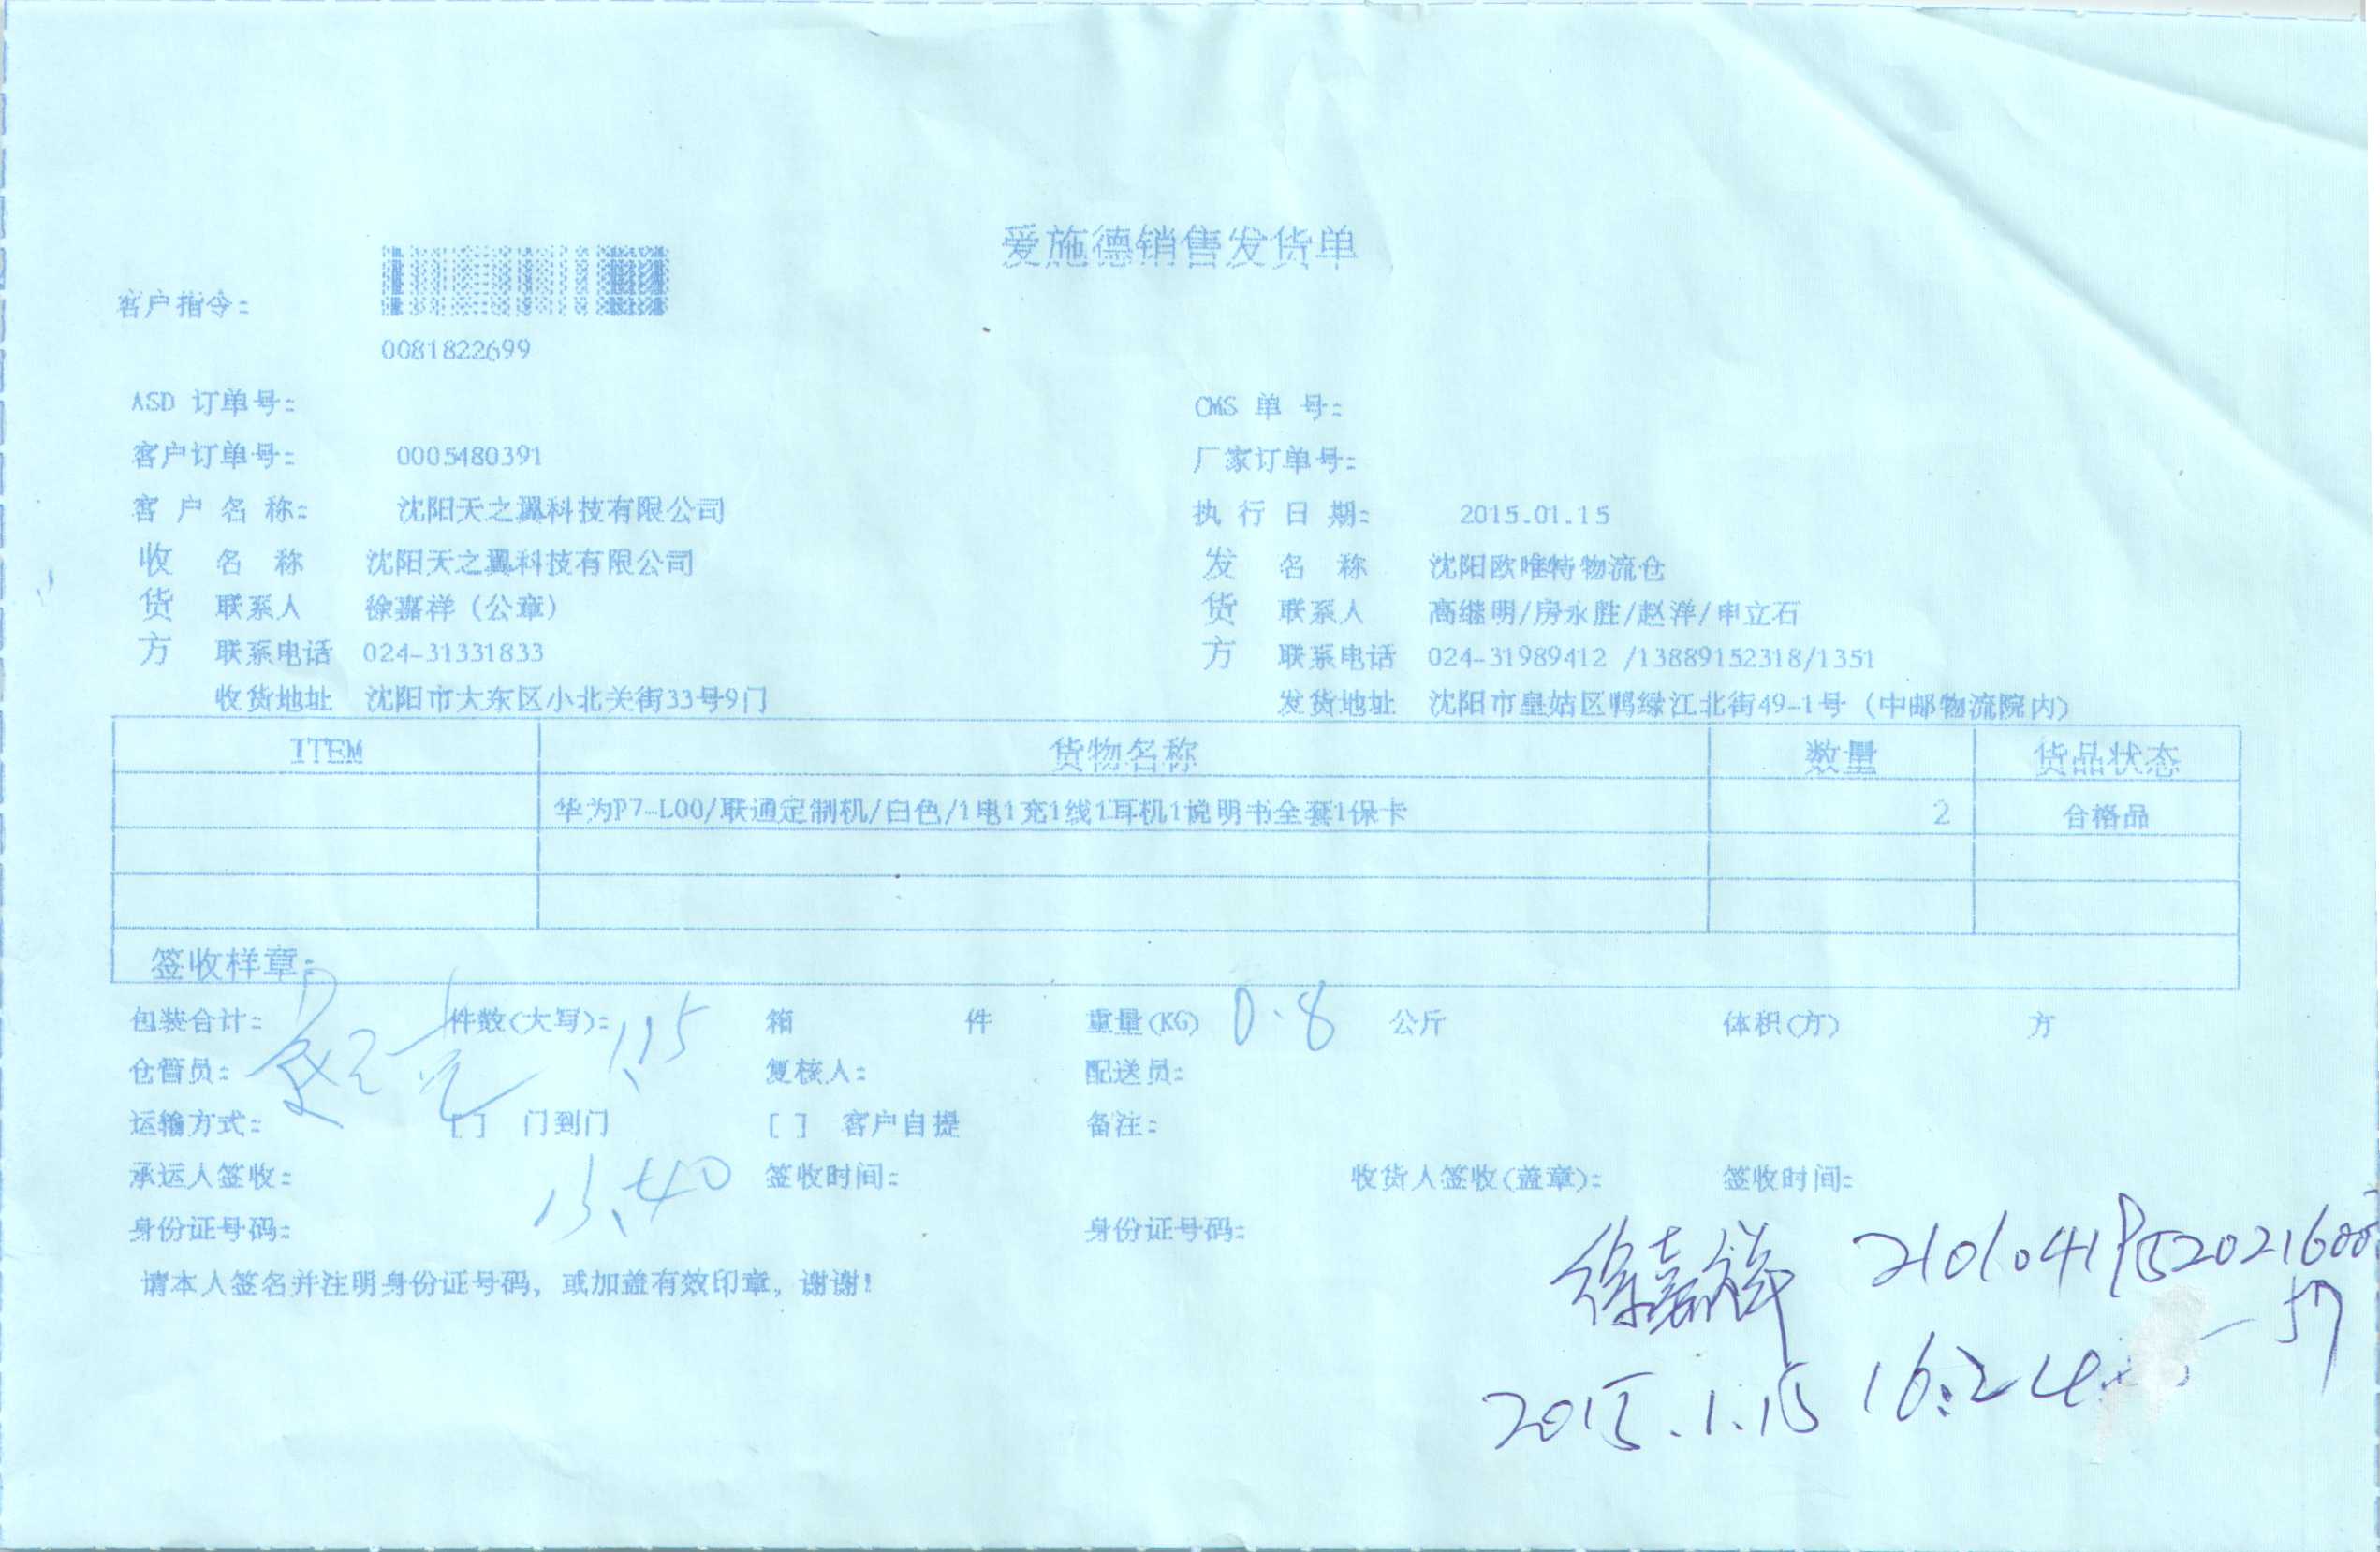 爱施德销售发货单
客户指令:
0081822699
ASD 订单号: OMS 单 号:
客户订单号: 0005480391 厂家订单号:
客 户 名 称: 沈阳天之翼科技有限公司 执 行 日 期: 2015.01.15
收 名 称 沈阳天之翼科技有限公司 发 名 称 沈阳欧唯特物流仓
货 联系人 徐嘉祥 (公章) 货 联系人 高继明/房永胜/赵洋/申立石
方 联系电话 024-31331833 方 联系电话 024-31989412 /13889152318/1351
收货地址 沈阳市大东区小北关街33号9门 发货地址 沈阳市皇姑区鸭绿江北街49-1号 (中邮物流院内)
ITEM 货物名称 数量 货品状态
华为P7-L00/联通定制机/白色/1电1充1线1耳机1说明书全套1保卡 2 合格品
签收样章:
包装合计: 件数(大写): 1.15 箱 件 重量(KG) 0.8 公斤 体积(方) 方
仓管员: 复核人: 配送员:
运输方式: [ ] 门到门 [ ] 客户自提 备注:
承运人签收: 15.40 签收时间: 收货人签收(盖章): 签收时间:
身份证号码: 身份证号码:
徐嘉祥
请本人签名并注明身份证号码, 或加盖有效印章, 谢谢!
2015.1.15 16:24